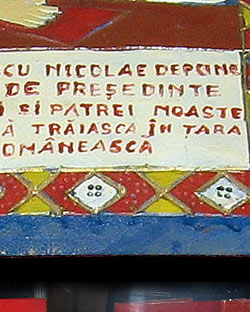 CU NICOLAE DEPUNE
DE PREȘEDINTE
I SI PATREI NOASTE
Ă TRĂIASCA. ÎN TARA
OMÂNEASCĂ